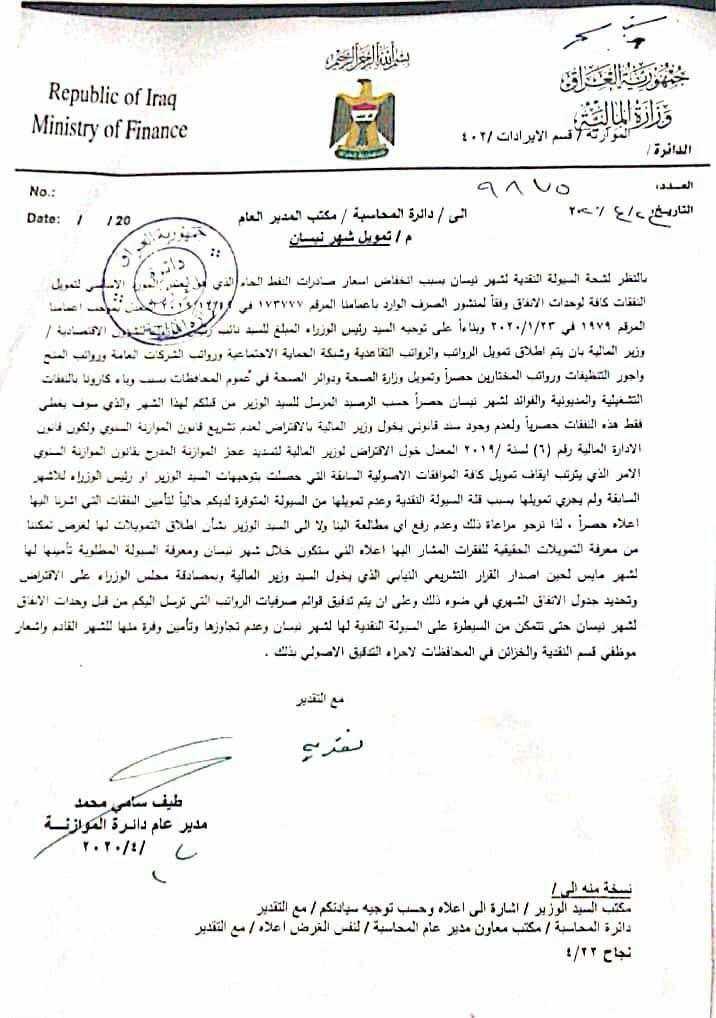 بسم الله الرحمن الرحيم
Republic of Iraq
Ministry of Finance
جمهورية العراق
وزارة المالية
الموازنة / قسم الايرادات /٤٠٢
الدائرة /
No.:
Date: / /20
العـدد: ٩٨٧٥
التاريخ:
الى / دائرة المحاسبة / مكتب المدير العام
م / تمويل شهر نيسان
جمهورية العراق
دائرة
بالنظر لشحة السيولة النقدية لشهر نيسان بسبب انخفاض اسعار صادرات النفط الخام الذي هو المورد الاساسي لتمويل
النفقات كافة لوحدات الانفاق وفقاً لمنشور الصرف الوارد باعمامنا المرقم ١٧٣٧٧٧ في بموجب اعمامنا
المرقم ١٩٧٩ في ٢٠٢٠/١/٢٣ وبناءاً على توجيه السيد رئيس الوزراء المبلغ للسيد نائب لشؤون الاقتصادية /
وزير المالية بان يتم اطلاق تمويل الرواتب والرواتب التقاعدية وشبكة الحماية الاجتماعية ورواتب الشركات العامة ورواتب المنح
واجور التنظيفات ورواتب المختارين حصراً وتمويل وزارة الصحة ودوائر الصحة في عموم المحافظات بسبب وباء كارونا بالنفقات
التشغيلية والمديونية والفوائد لشهر نيسان حصراً حسب الرصيد المرسل للسيد الوزير من قبلكم لهذا الشهر والذي سوف يغطي
فقط هذه النفقات حصرياً ولعدم وجود سند قانوني يخول وزير المالية بالاقتراض لعدم تشريع قانون الموازنة السنوي ولكون قانون
الادارة المالية رقم (٦) لسنة /٢٠١٩ المعدل خول الاقتراض لوزير المالية لتسديد عجز الموازنة المدرج بقانون الموازنة السنوي
الامر الذي يترتب ايقاف تمويل كافة الموافقات الاصولية السابقة التي حصلت بتوجيهات السيد الوزير او رئيس الوزراء للاشهر
السابقة ولم يجري تمويلها بسبب قلة السيولة النقدية وعدم تمويلها من السيولة المتوفرة لديكم حالياً لتأمين النفقات التي اشرنا اليها
اعلاه حصراً ، لذا نرجو مراعاة ذلك وعدم رفع اي مطالعة الينا ولا الى السيد الوزير بشأن اطلاق التمويلات لها لغرض تمكننا
من معرفة التمويلات الحقيقية للفقرات المشار اليها اعلاه التي ستكون خلال شهر نيسان ومعرفة السيولة المطلوبة تأمينها لها
لشهر مايس لحين اصدار القرار التشريعي النيابي الذي يخول السيد وزير المالية وبمصادقة مجلس الوزراء على الاقتراض
وتحديد جدول الانفاق الشهري في ضوء ذلك وعلى ان يتم تدقيق قوائم صرفيات الرواتب التي ترسل اليكم من قبل وحدات الانفاق
لشهر نيسان حتى نتمكن من السيطرة على السيولة النقدية لها لشهر نيسان وعدم تجاوزها وتأمين وفرة منها للشهر القادم واشعار
موظفي قسم النقدية والخزائن في المحافظات لاجراء التدقيق الاصولي بذلك .
مع التقدير
نقديه
طيف سامي محمد
مدير عام دائرة الموازنـــة
/٢٠٢٠/٤
نسخة منه الى /
مكتب السيد الوزير / اشارة الى اعلاه وحسب توجيه سيادتكم / مع التقدير
دائرة المحاسبة / مكتب معاون مدير عام المحاسبة / لنفس الغرض اعلاه / مع التقدير
نجاح ٤/٢٢